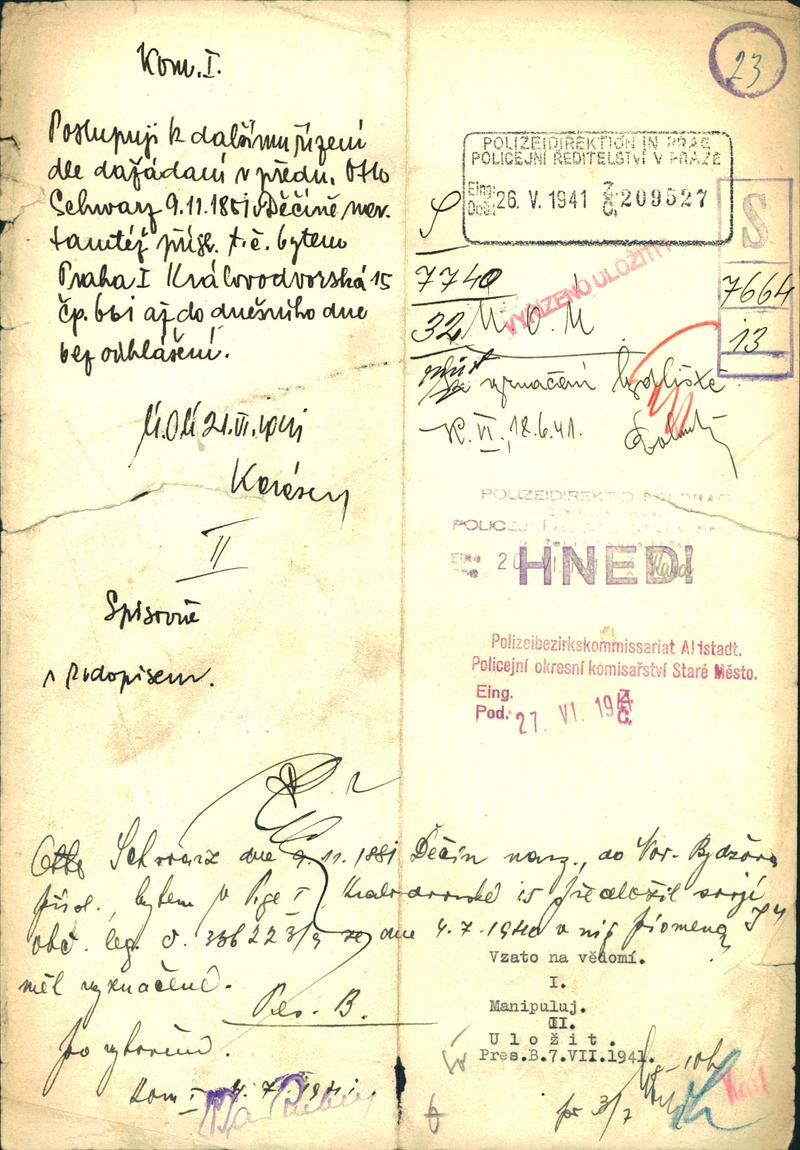 Kom. I.
Postupuji k dalšímu řízení
dle dožádání v předu. Otto
Schwarz 9.11.1881 v Děčíně nar.
tamtéž přísl. t.č. bytem
Praha I Královodvorská 15
čp. 661 až do dnešního dne
bez odhlášení.
21.VI.1941
II
Spisovně
s rodopisem.
23
POLIZEIDIREKTION IN PRAG
POLICEJNÍ ŘEDITELSTVÍ V PRAZE
Eing.
Došl. 26. V. 1941 Z. Č. 209527
S
7740
32
VYŘÍZENO ULOŽITI!
M. O. M
S
7664
13
vyznačení bydliště
K. VI. 18.6.41.
POLIZEIDIREKTION PRAG
HNED!
Polizeibezirkskommissariat Altstadt.
Policejní okresní komisařství Staré Město.
Eing.
Pod. 27. VI. 19 Z. Č.
Otto Schwarz dne 9.11.1881 Děčín nar., do Nov. Bydžova
přísl. bytem v Pze I Královodvorské 15 předložil svoji
obč. leg. č. ze dne 4.7.1940 v níž písmeno "J"
měl vyznačené.
Pres. B.
po vyřízení.
Kom I 4. 7. 1941
Vzato na vědomí.
I.
Manipuluj.
II.
Uložit.
Pres.B.7.VII.1941.